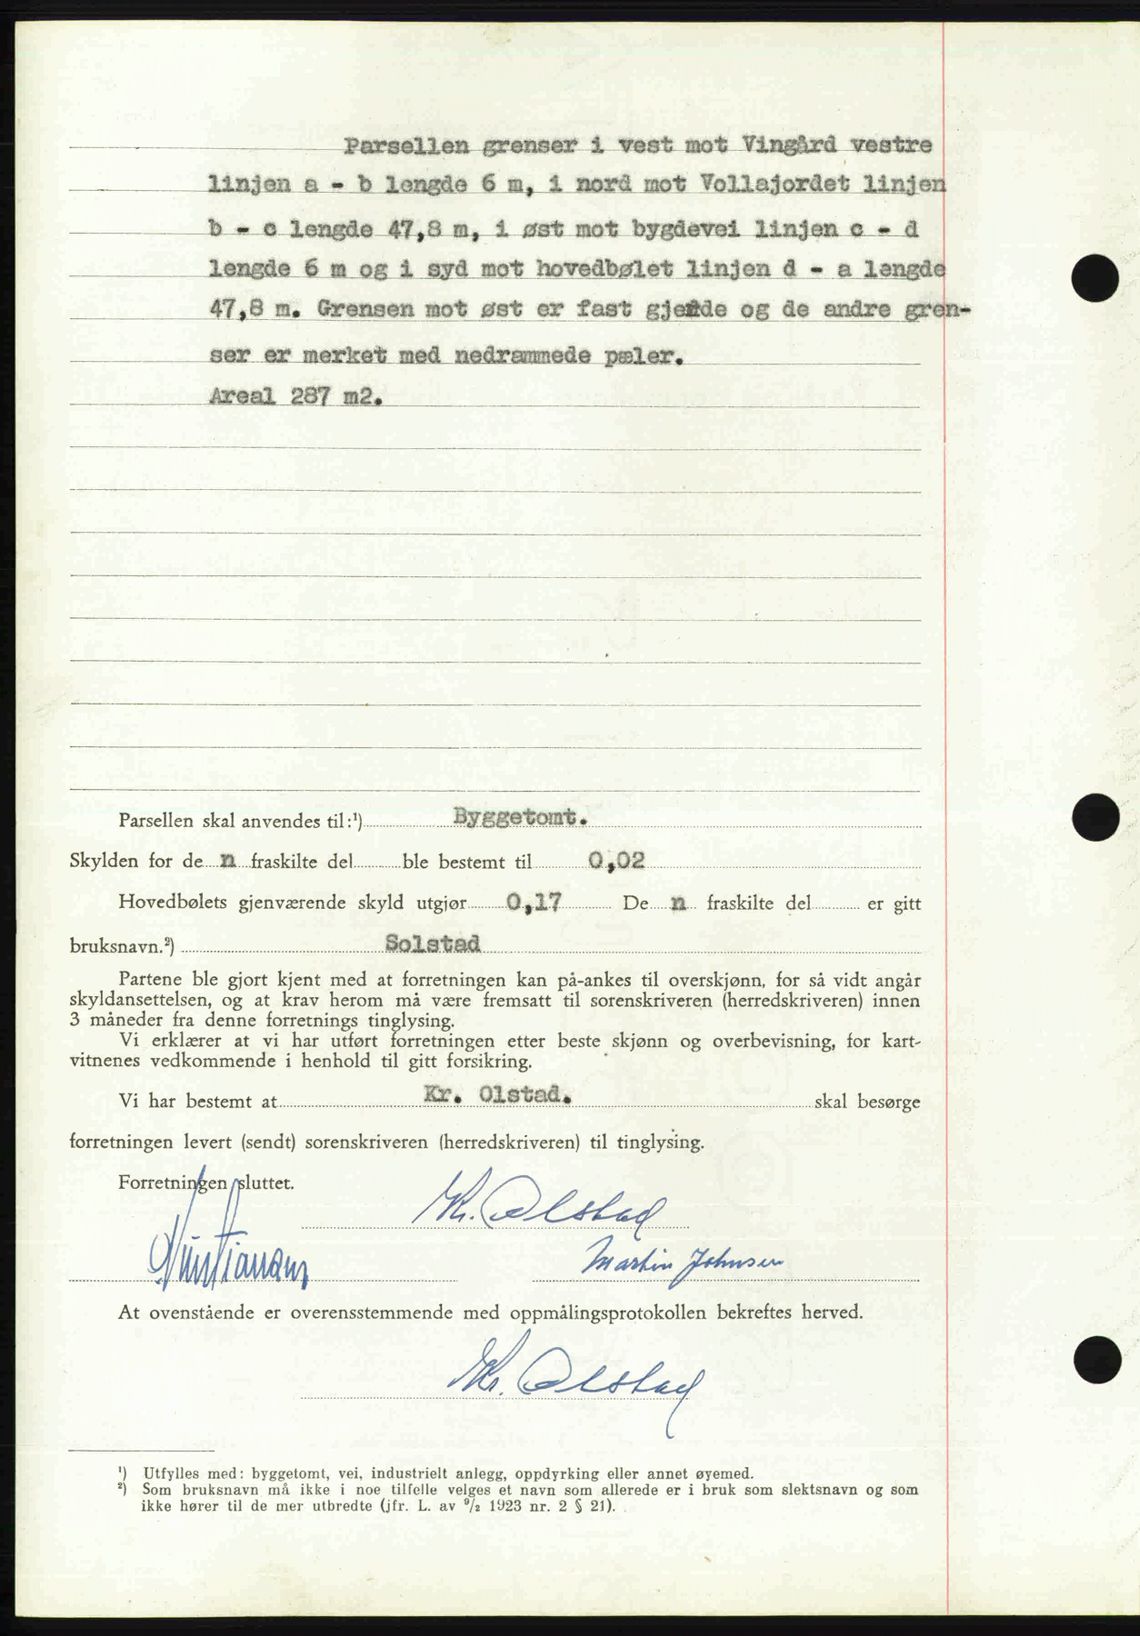 Parsellen grenser i vest mot Vingård vestre
linjen a - b lengde 6 m, i nord mot Vollajordet linjen
b - c lengde 47,8 m, i øst mot bygdevei linjen c - d
lengde 6 m og i syd mot hovedbølet linjen d - a lengde
47,8 m. Grensen mot øst er fast gjerde og de andre gren-
ser er merket med nedrammede pæler.
Areal 287 m2.
Parsellen skal anvendes til:¹) Byggetomt.
Skylden for de n fraskilte del ble bestemt til 0,02
Hovedbølets gjenværende skyld utgjør 0,17 De n fraskilte del er gitt
bruksnavn.²) Solstad
Partene ble gjort kjent med at forretningen kan på-ankes til overskjønn, for så vidt angår
skyldansettelsen, og at krav herom må være fremsatt til sorenskriveren (herredskriveren) innen
3 måneder fra denne forretnings tinglysing.
Vi erklærer at vi har utført forretningen etter beste skjønn og overbevisning, for kart-
vitnenes vedkommende i henhold til gitt forsikring.
Vi har bestemt at Kr. Olstad. skal besørge
forretningen levert (sendt) sorenskriveren (herredskriveren) til tinglysing.
Forretningen sluttet.
Kr. Olstad
Kristiansen Martin Johnsen
At ovenstående er overensstemmende med oppmålingsprotokollen bekreftes herved.
Kr. Olstad
¹) Utfylles med: byggetomt, vei, industrielt anlegg, oppdyrking eller annet øyemed.
²) Som bruksnavn må ikke i noe tilfelle velges et navn som allerede er i bruk som slektsnavn og som
ikke hører til de mer utbredte (jfr. L. av ⁹/₂ 1923 nr. 2 § 21).